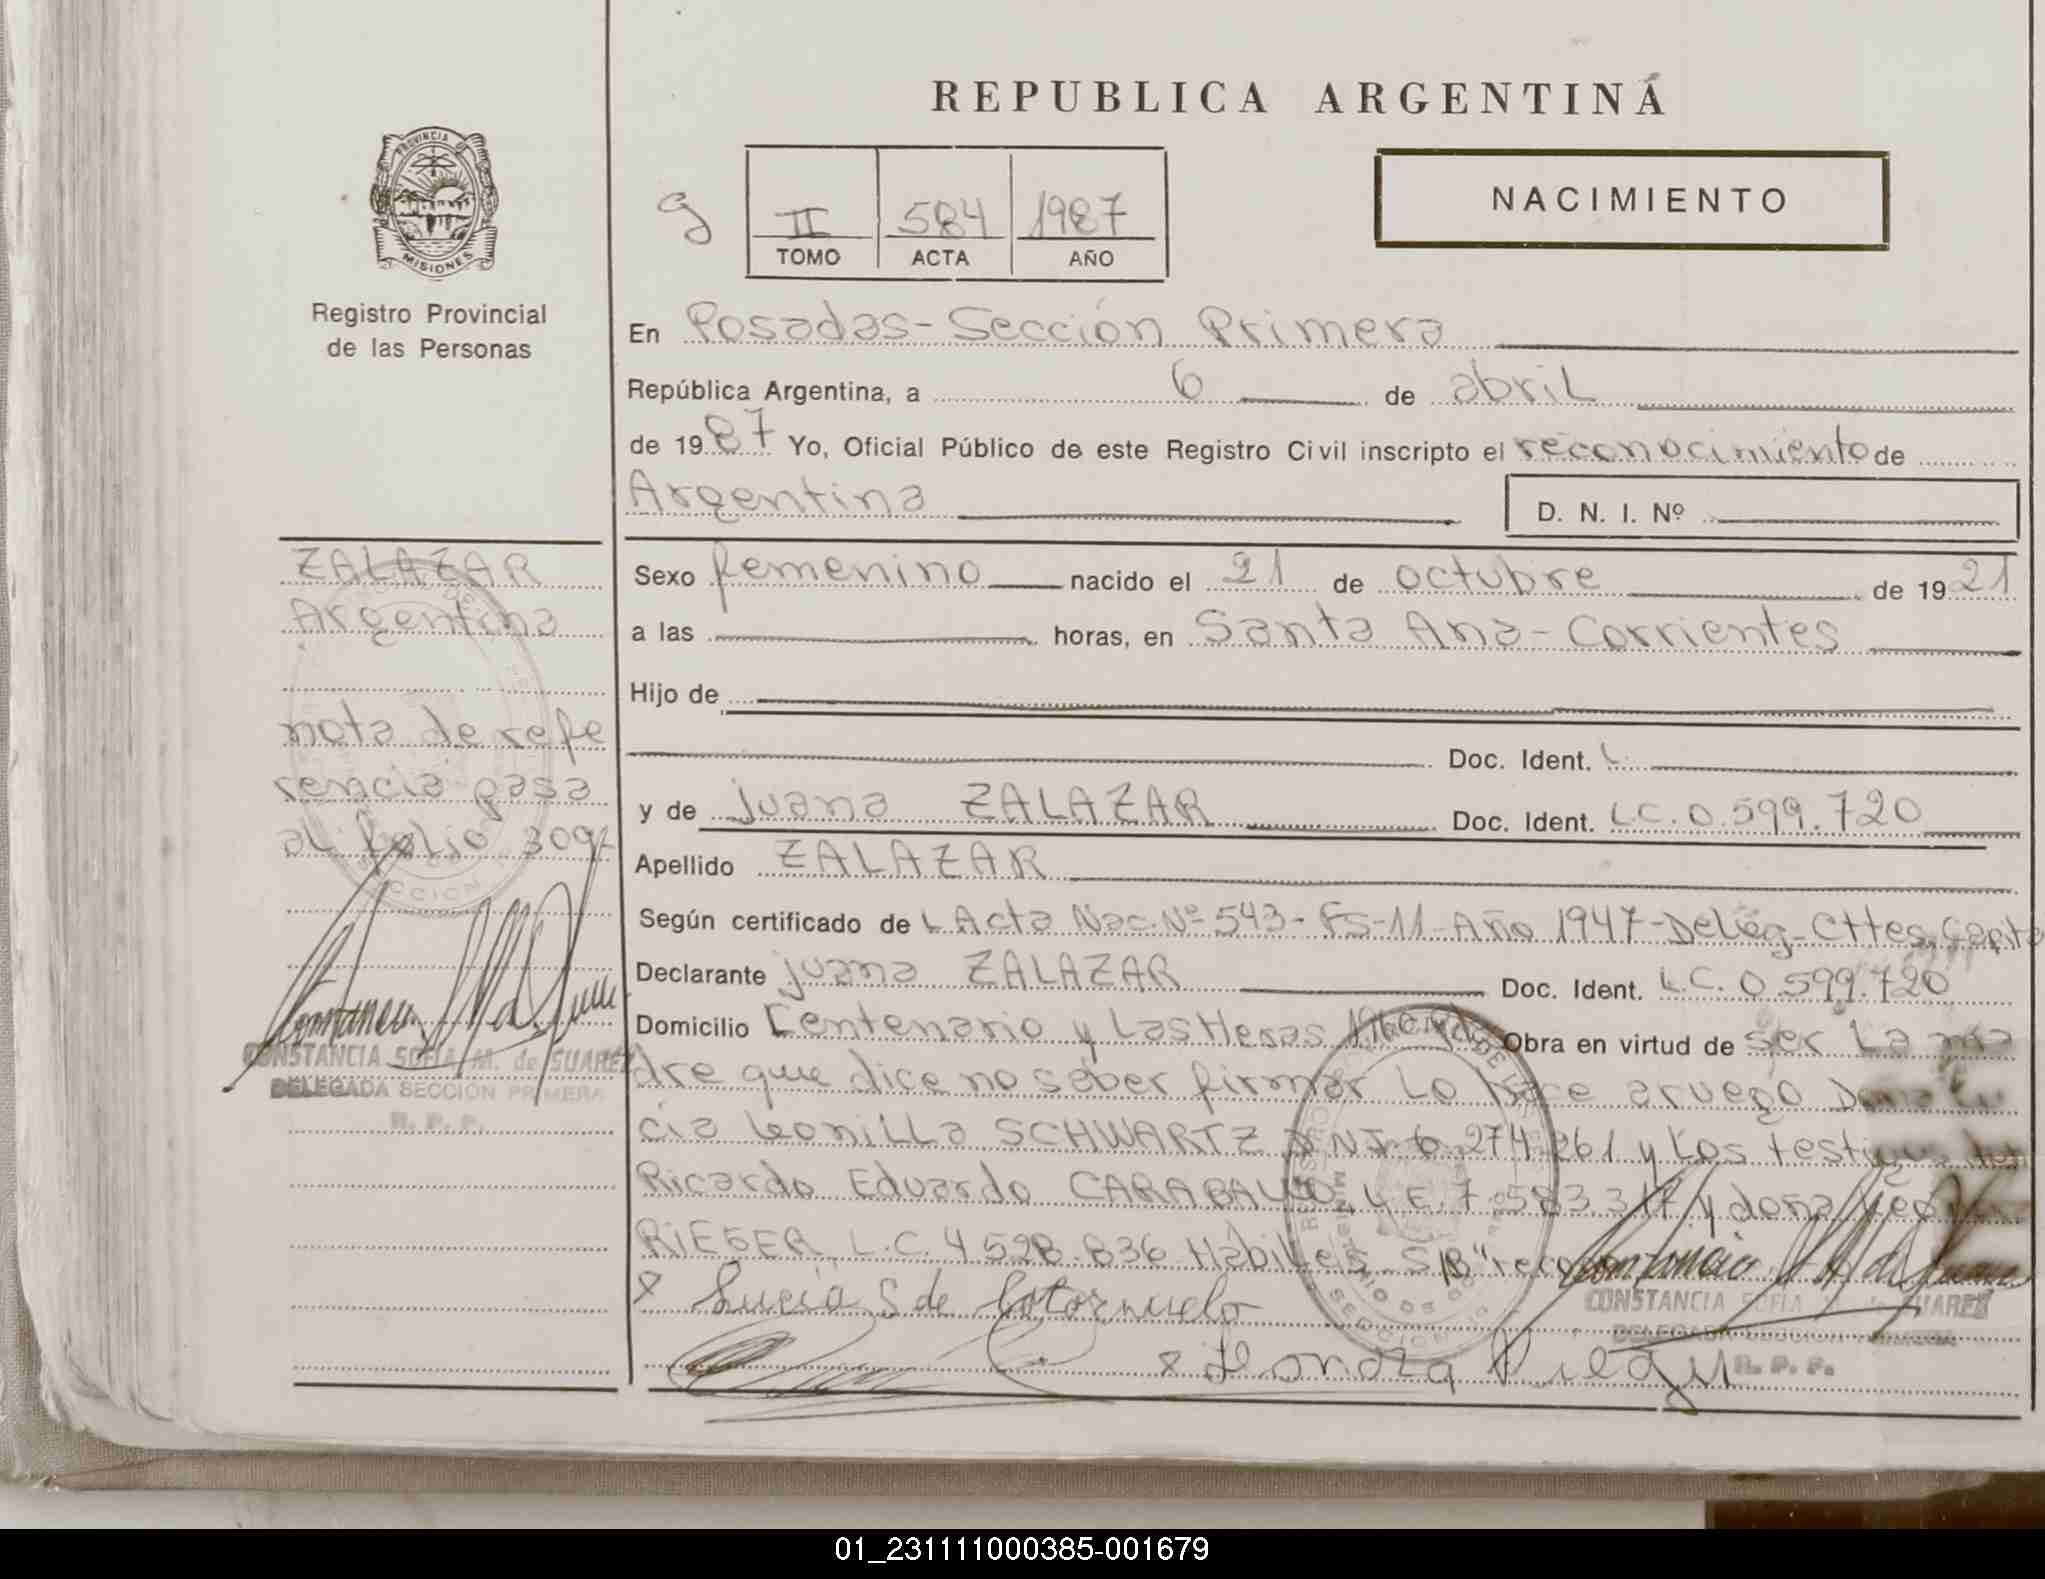 REPUBLICA ARGENTINA
PROVINCIA DE
MISIONES
Registro Provincial
de las Personas
g
II 584 1987
TOMO ACTA AÑO
NACIMIENTO
En Posadas-Sección Primera
República Argentina, a 6 de abril
de 1987 Yo, Oficial Público de este Registro Civil inscripto el reconocimiento de
Argentina
D. N. I. Nº
ZALAZAR
Argentina
nota de refe
rencia pasa
al folio 309
CONSTANCIA SOFIA M. de SUAREZ
DELEGADA SECCION PRIMERA
R. P. P.
Sexo femenino nacido el 21 de octubre de 1921
a las horas, en Santa Ana-Corrientes
Hijo de
Doc. Ident.
y de Juana ZALAZAR Doc. Ident. L.C.0.599.720
Apellido ZALAZAR
Según certificado de L Acta Nac.Nº 543-Fs-11-Año 1947-Deleg-Cttes.
Declarante Juana ZALAZAR Doc. Ident. L.C.0.599.720
Domicilio Centenario y Las Heras Obra en virtud de ser La ma
dre que dice no saber firmar Lo hace aruego
cia Leonilla SCHWARTZ DNI 6.274.261 y Los
Ricardo Eduardo CARABALLO L.E.7.583.317 y doña
RIEGER L.C.4.528.836 Hábiles
Lucia S de
CONSTANCIA SOFIA M. de SUAREZ
DELEGADA SECCION PRIMERA
R. P. P.
01_231111000385-001679